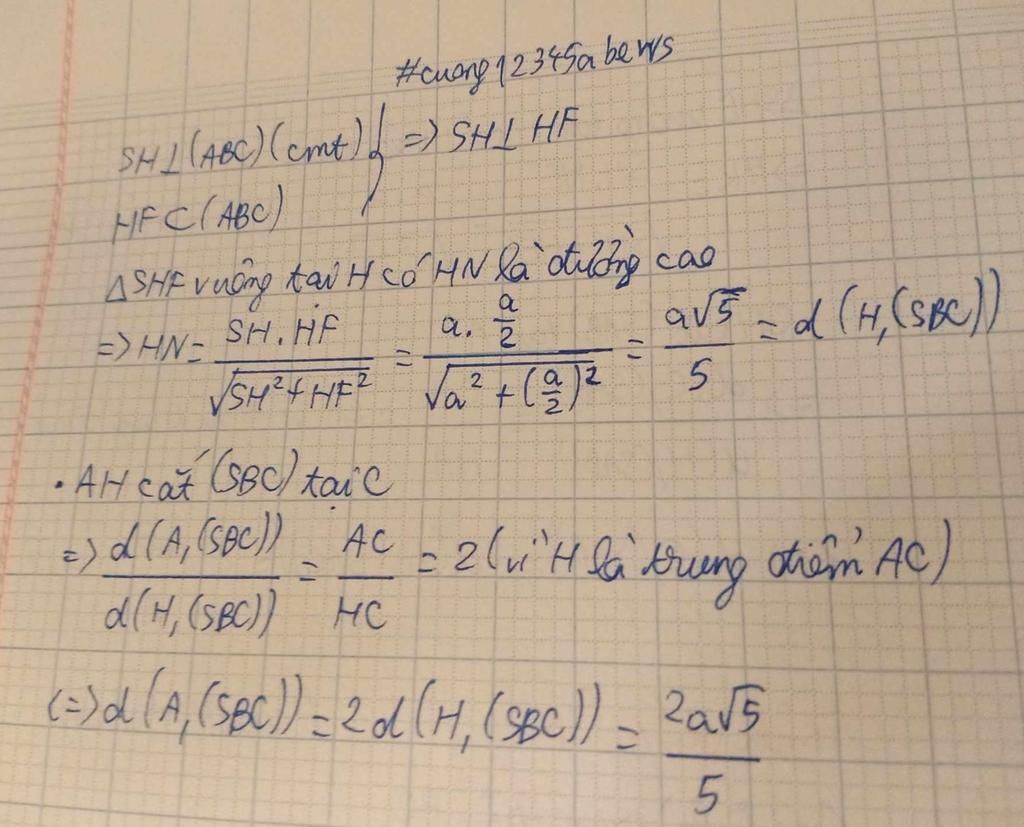 #cuong12345abews
SH⊥(ABC)(cmt) } => SH⊥HF
HF⊂(ABC)
△SHF vuông tại H có HN là đường cao
=> HN = SH.HF / √(SH²+HF²) = a.a/2 / √(a²+(a/2)²) = a√5/5 = d(H,(SBC))
• AH cắt (SBC) tại C
=> d(A,(SBC)) / d(H,(SBC)) = AC/HC = 2 (vì H là trung điểm AC)
(=> d(A,(SBC)) = 2d(H,(SBC)) = 2a√5/5